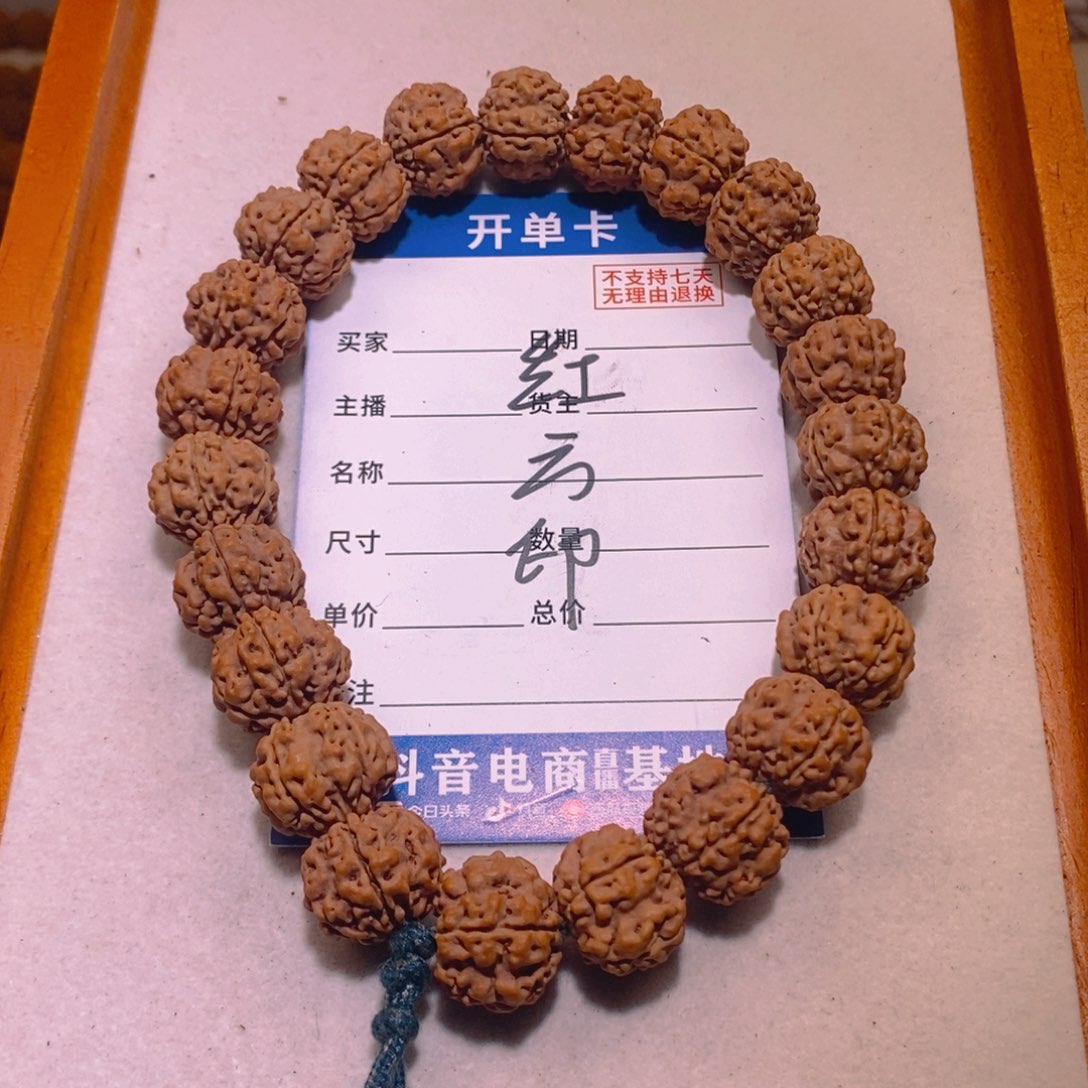 开单卡
不支持七天
无理由退换
买家 日期
主播 货主
名称
尺寸 数量
单价 总价
注
红
云
印
抖音电商直播基地
今日头条